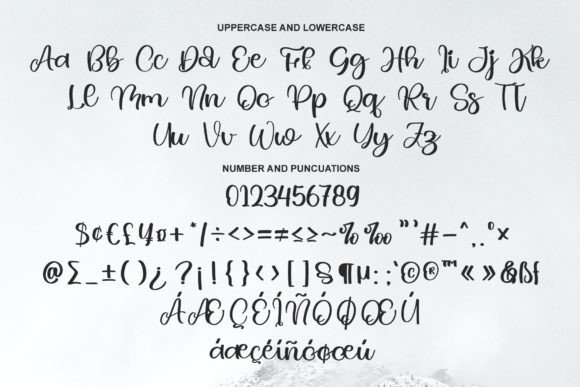 UPPERCASE AND LOWERCASE
Aa Bb Cc Dd Ee Ff Gg Hh Ii Jj Kk
Ll Mm Nn Oo Pp Qq Rr Ss Tt
Uu Vv Ww Xx Yy Zz
NUMBER AND PUNCUATIONS
0123456789
$¢€£¥¤+*/÷<>=≠≤≥~%‰"'#-^.,°×
@∑_±()¿?¡!{}‹›[]§¶µ:;'©®™«»&ßf
ÁÆÇÉÍÑÓØŒÚ
áæçéíñóøœú